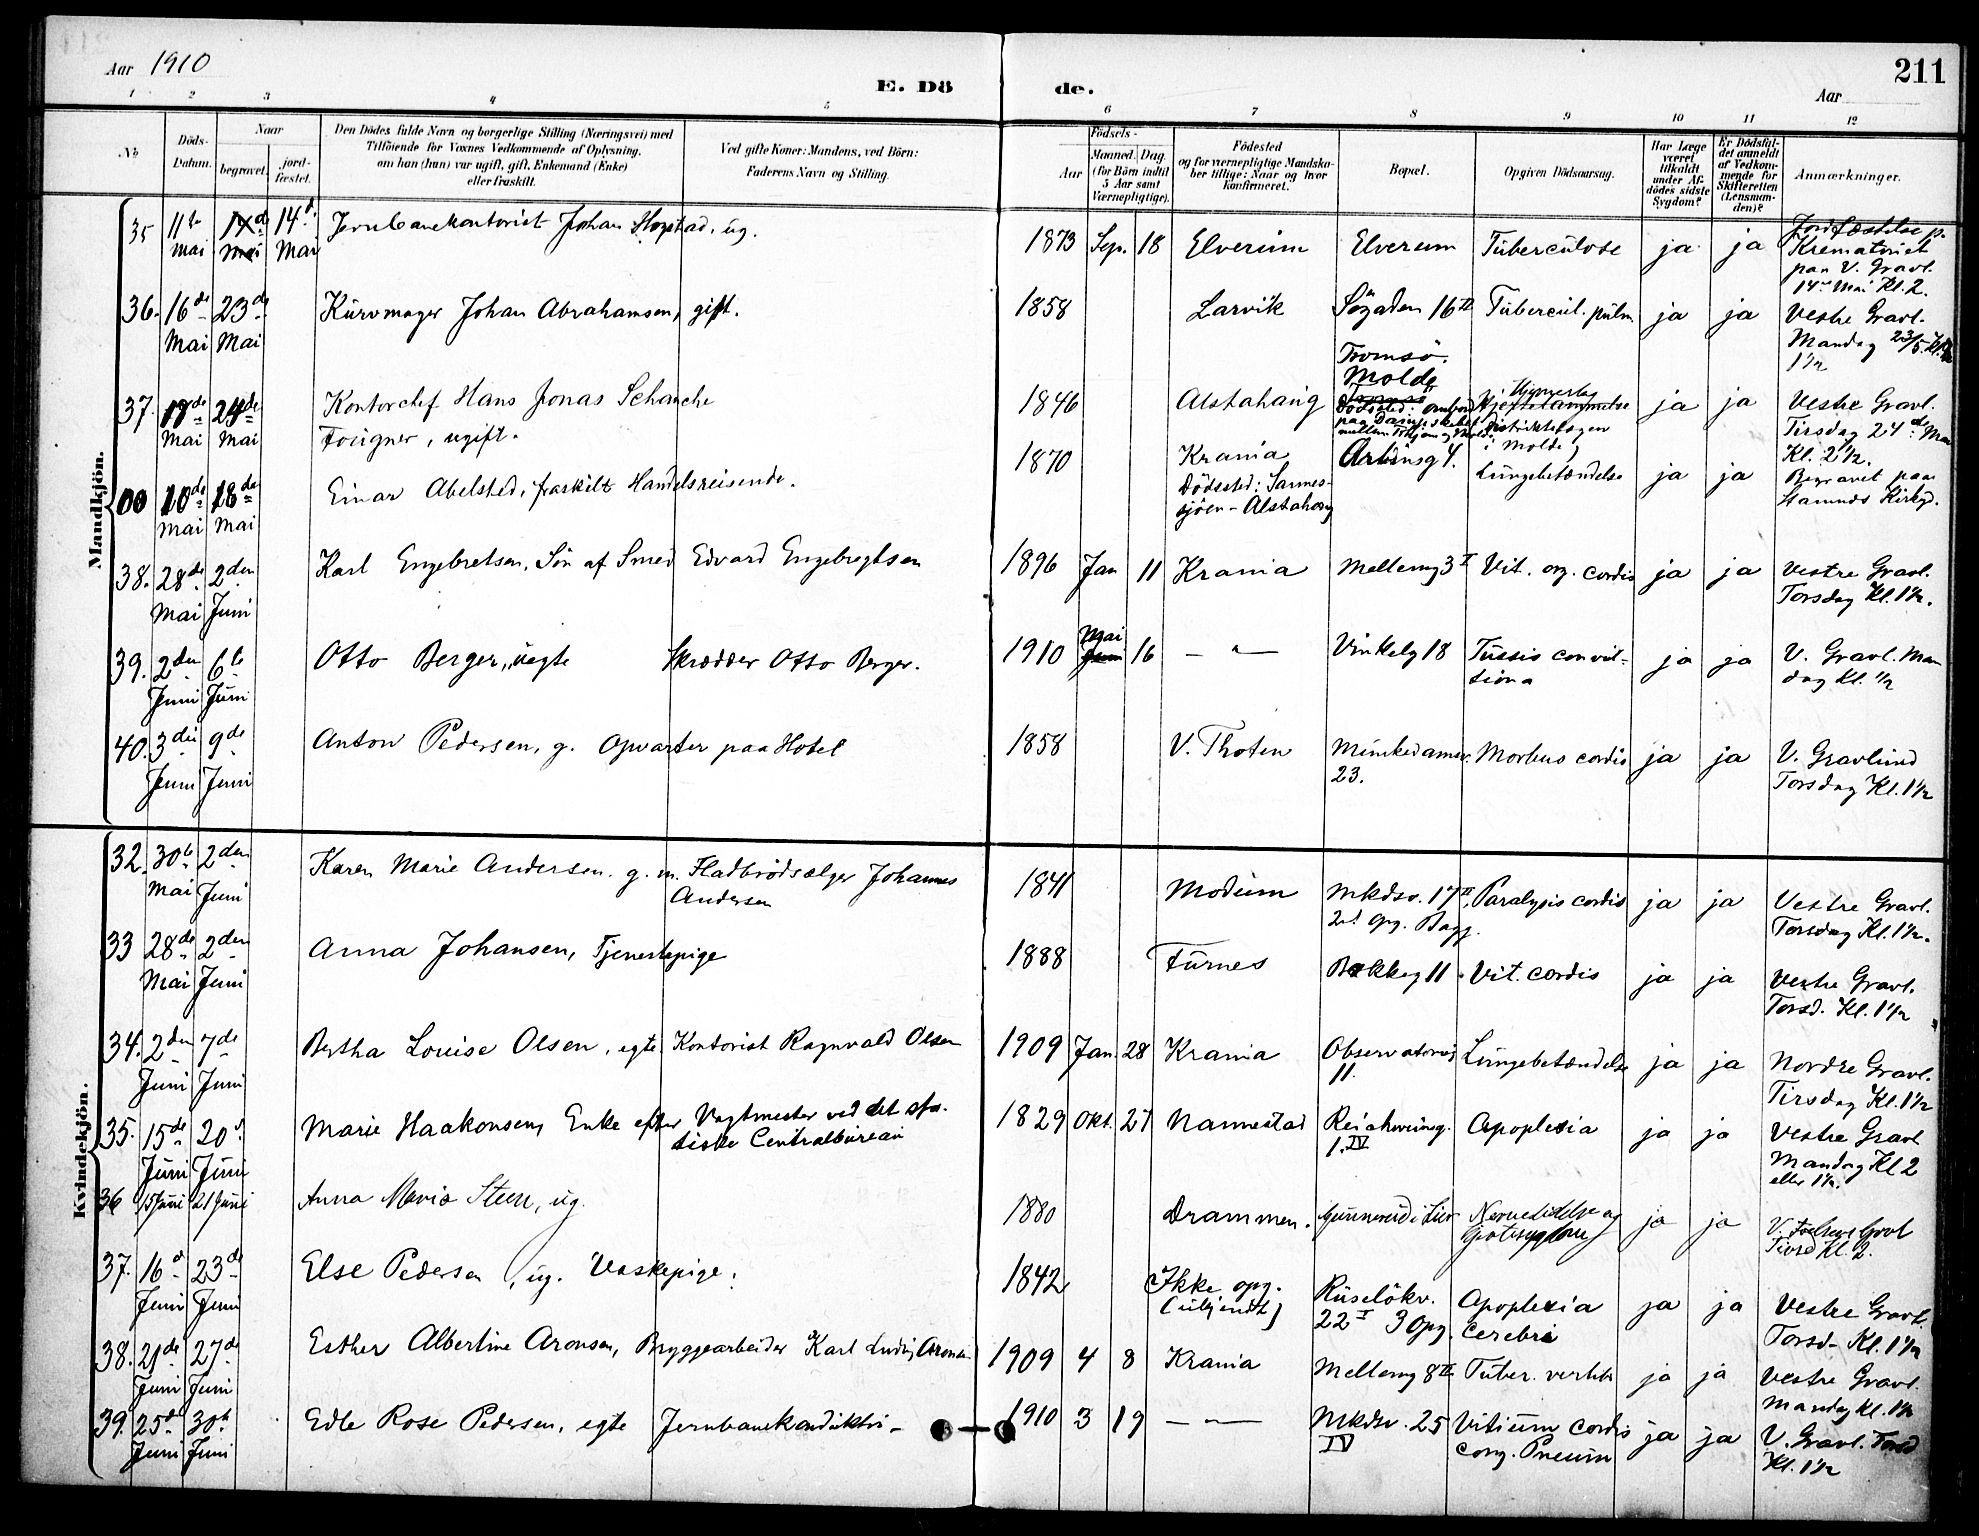 Aar 1910
E. Dö
de.
211
Aar
1 2 3 4 5 6 7 8 9 10 11 12
No.
Döds-
Datum.
Naar
begravet.
jord-
fæstet.
Den Dödes fulde Navn og borgerlige Stilling (Næringsvei) med
Tilföiende for Voxnes Vedkommende af Oplysning,
om han (hun) var ugift, gift, Enkemand (Enke)
eller fraskilt.
Ved gifte Koner: Mandens, ved Börn:
Faderens Navn og Stilling.
Födsels-
Aar
Maaned.
Dag.
(for Börn indtil
5 Aar samt
Værnepligtige).
Födested
og for værnepligtige Mandska-
ber tillige: Naar og hvor
konfirmeret.
Bopæl.
Opgiven Dödsaarsag.
Har Læge
været
tilkaldt
under Af-
dödes sidste
Sygdom?
Er Dödsfal-
det anmeldt
af Vedkom-
mende for
Skifteretten
(Lensman-
den)?
Anmærkninger.
Mandkjön.
35 11te Mai 14d. Mai 14d. Mai Jernbanekontorist Johan ug. 1873 Sep. 18 Elverum Elverum Tuberculose ja ja Jordfæstelse p.
Krematoriet
paa V. Gravl.
14de Mai Kl. 2.
36. 16de Mai 23de Mai Kurvmager Johan Abrahamsen, gift. 1858 Larvik Sögaden 16 II Tubercul. pulm. ja ja Vestre Gravl.
Mandag 23/5. Kl.
1½
37. 17de Mai 24de Mai Kontorchef Hans Jonas Schanche 1846 Alstahaug Tromsö.
Molde
Dödssted: ombord
paa Dampskibet
mellem Tr.hjem og Molde
Hjertelammelse
Distriktslægen
i Molde
ja ja Vestre Gravl.
Tirsdag 24de Mai
Kl. 2½.
Fosigner, ugift.
00 10de Mai 18de Mai Einar Abelsted, fraskilt Handelsreisende. 1870 Krania
Dödssted: Sannes-
sjöen - Alstahaug
Arbinsg 4. Lungebetændelse ja ja Begravet paa
Stamnes Kirkeg.
38. 28de Mai 2den Juni Karl Engebretsen, Sön af Smed Edvard Engebregtsen 1896 Jan 11 Krania Mellemg 3 I Vit. org. cordis ja ja Vestre Gravl.
Torsdag Kl. 1½.
39. 2den Juni 6te Juni Otto Berger, uegte Skrædder Otto Berger. 1910 Mai 16 — " — Vinkelg 18 Tussis convul-
siona
ja ja V. Gravl. Man
dag Kl. 1½
40. 3die Juni 9de Juni Anton Pedersen, g. Opvarter paa Hotel 1858 V. Thoten Munkedamsv.
23.
Morbus cordis ja ja V. Gravlund
Torsdag Kl. 1½
Kvindekjön.
32. 30te Mai 2den Juni Karen Marie Andersen. g. m. Fladbrödsælger Johannes
Andersen
1841 Modum Mkdsv. 17 II,
2d Opg. Bagg.
Paralysis cordis ja ja Vestre Gravl.
Torsdag Kl. 1½.
33 28de Mai 2den Juni Anna Johansen, Tjenestepige 1888 Furnes Bakkeg 11. Vit. cordis ja ja Vestre Gravl.
Torsd. Kl. 1½
34. 2den Juni 7de Juni Bertha Louise Olsen, egte Kontorist Ragnvald Olsen 1909 Jan. 28 Krania Observatorieg
11.
Lungebetændelse ja ja Nordre Gravl.
Tirsdag Kl. 1½
35. 15de Juni 20d Juni Marie Haakonsen, Enke efter Vagtmester ved det sta-
tiske Centralbureau
1829 Okt. 27 Nannestad
1. IV
Apoplexia ja ja Vestre Gravl
Mandag Kl 2
eller 1½.
36 15 Juni 21 Juni Anna Maria Steen, ug. 1880 Drammen. Gunnerud i Lier Nervelidelse og
ja ja V. Gravl
Tirsd Kl. 2.
37. 16d Juni 23de Juni Else Pedersen, ug. Vaskepige. 1842 Ikke opg.
(ubekjendt)
Ruselökv.
22 I 3 Opg.
Apoplexia
Cerebri
ja ja Vestre Gravl.
Torsd- Kl. 1½
38. 21de Juni 27de Juni Esther Albertine Aronsen, Bryggearbeider Karl Ludvig Aronsen 1909 4 8 Krania Mellemg 8 II Tuber. vertebr ja ja Vestre Gravl.
Mandag Kl. 1½
39. 25d Juni 30te Juni Edle Rose Pedersen, egte Jernbanekonduktör — 1910 3 19 — " — Mkdsv. 25
IV
Vitium Cordis
cong. Pneum
ja ja V. Gravl. Torsd
Kl. 1½